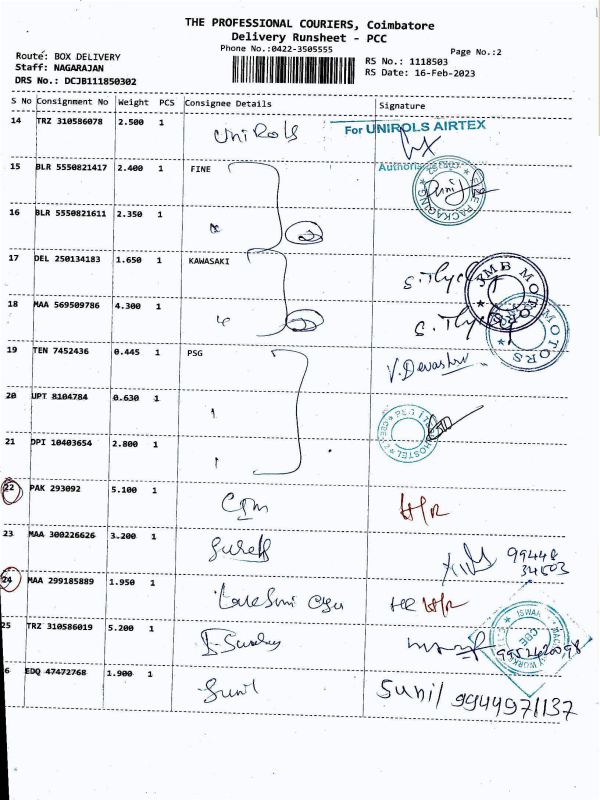 THE PROFESSIONAL COURIERS, Coimbatore
Delivery Runsheet - PCC
Phone No.:0422-3505555
Page No.:2
Route: BOX DELIVERY
Staff: NAGARAJAN
DRS No.: DCJB111850302
RS No.: 1118503
RS Date: 16-Feb-2023
S No Consignment No Weight PCS Consignee Details Signature
14 TRZ 310586078 2.500 1 UNiRols
For UNIROLS AIRTEX
15 BLR 5550821417 2.400 1 FINE
PACKAGING
16 BLR 5550821611 2.350 1
17 DEL 250134183 1.650 1 KAWASAKI
JMB MOTORS
18 MAA 569509786 4.300 1
MOTORS
19 TEN 7452436 0.445 1 PSG V.Devashri
20 UPT 8104784 0.630 1
HOSTEL
21 DPI 10403654 2.800 1
22 PAK 293092 5.100 1 H/R
23 MAA 300226626 3.200 1 Suresh 99448
34503
24 MAA 299185889 1.950 1 H/R
25 TRZ 310586019 5.200 1
CBE
6 EDQ 47472768 1.900 1 Sunil Sunil 9944971137